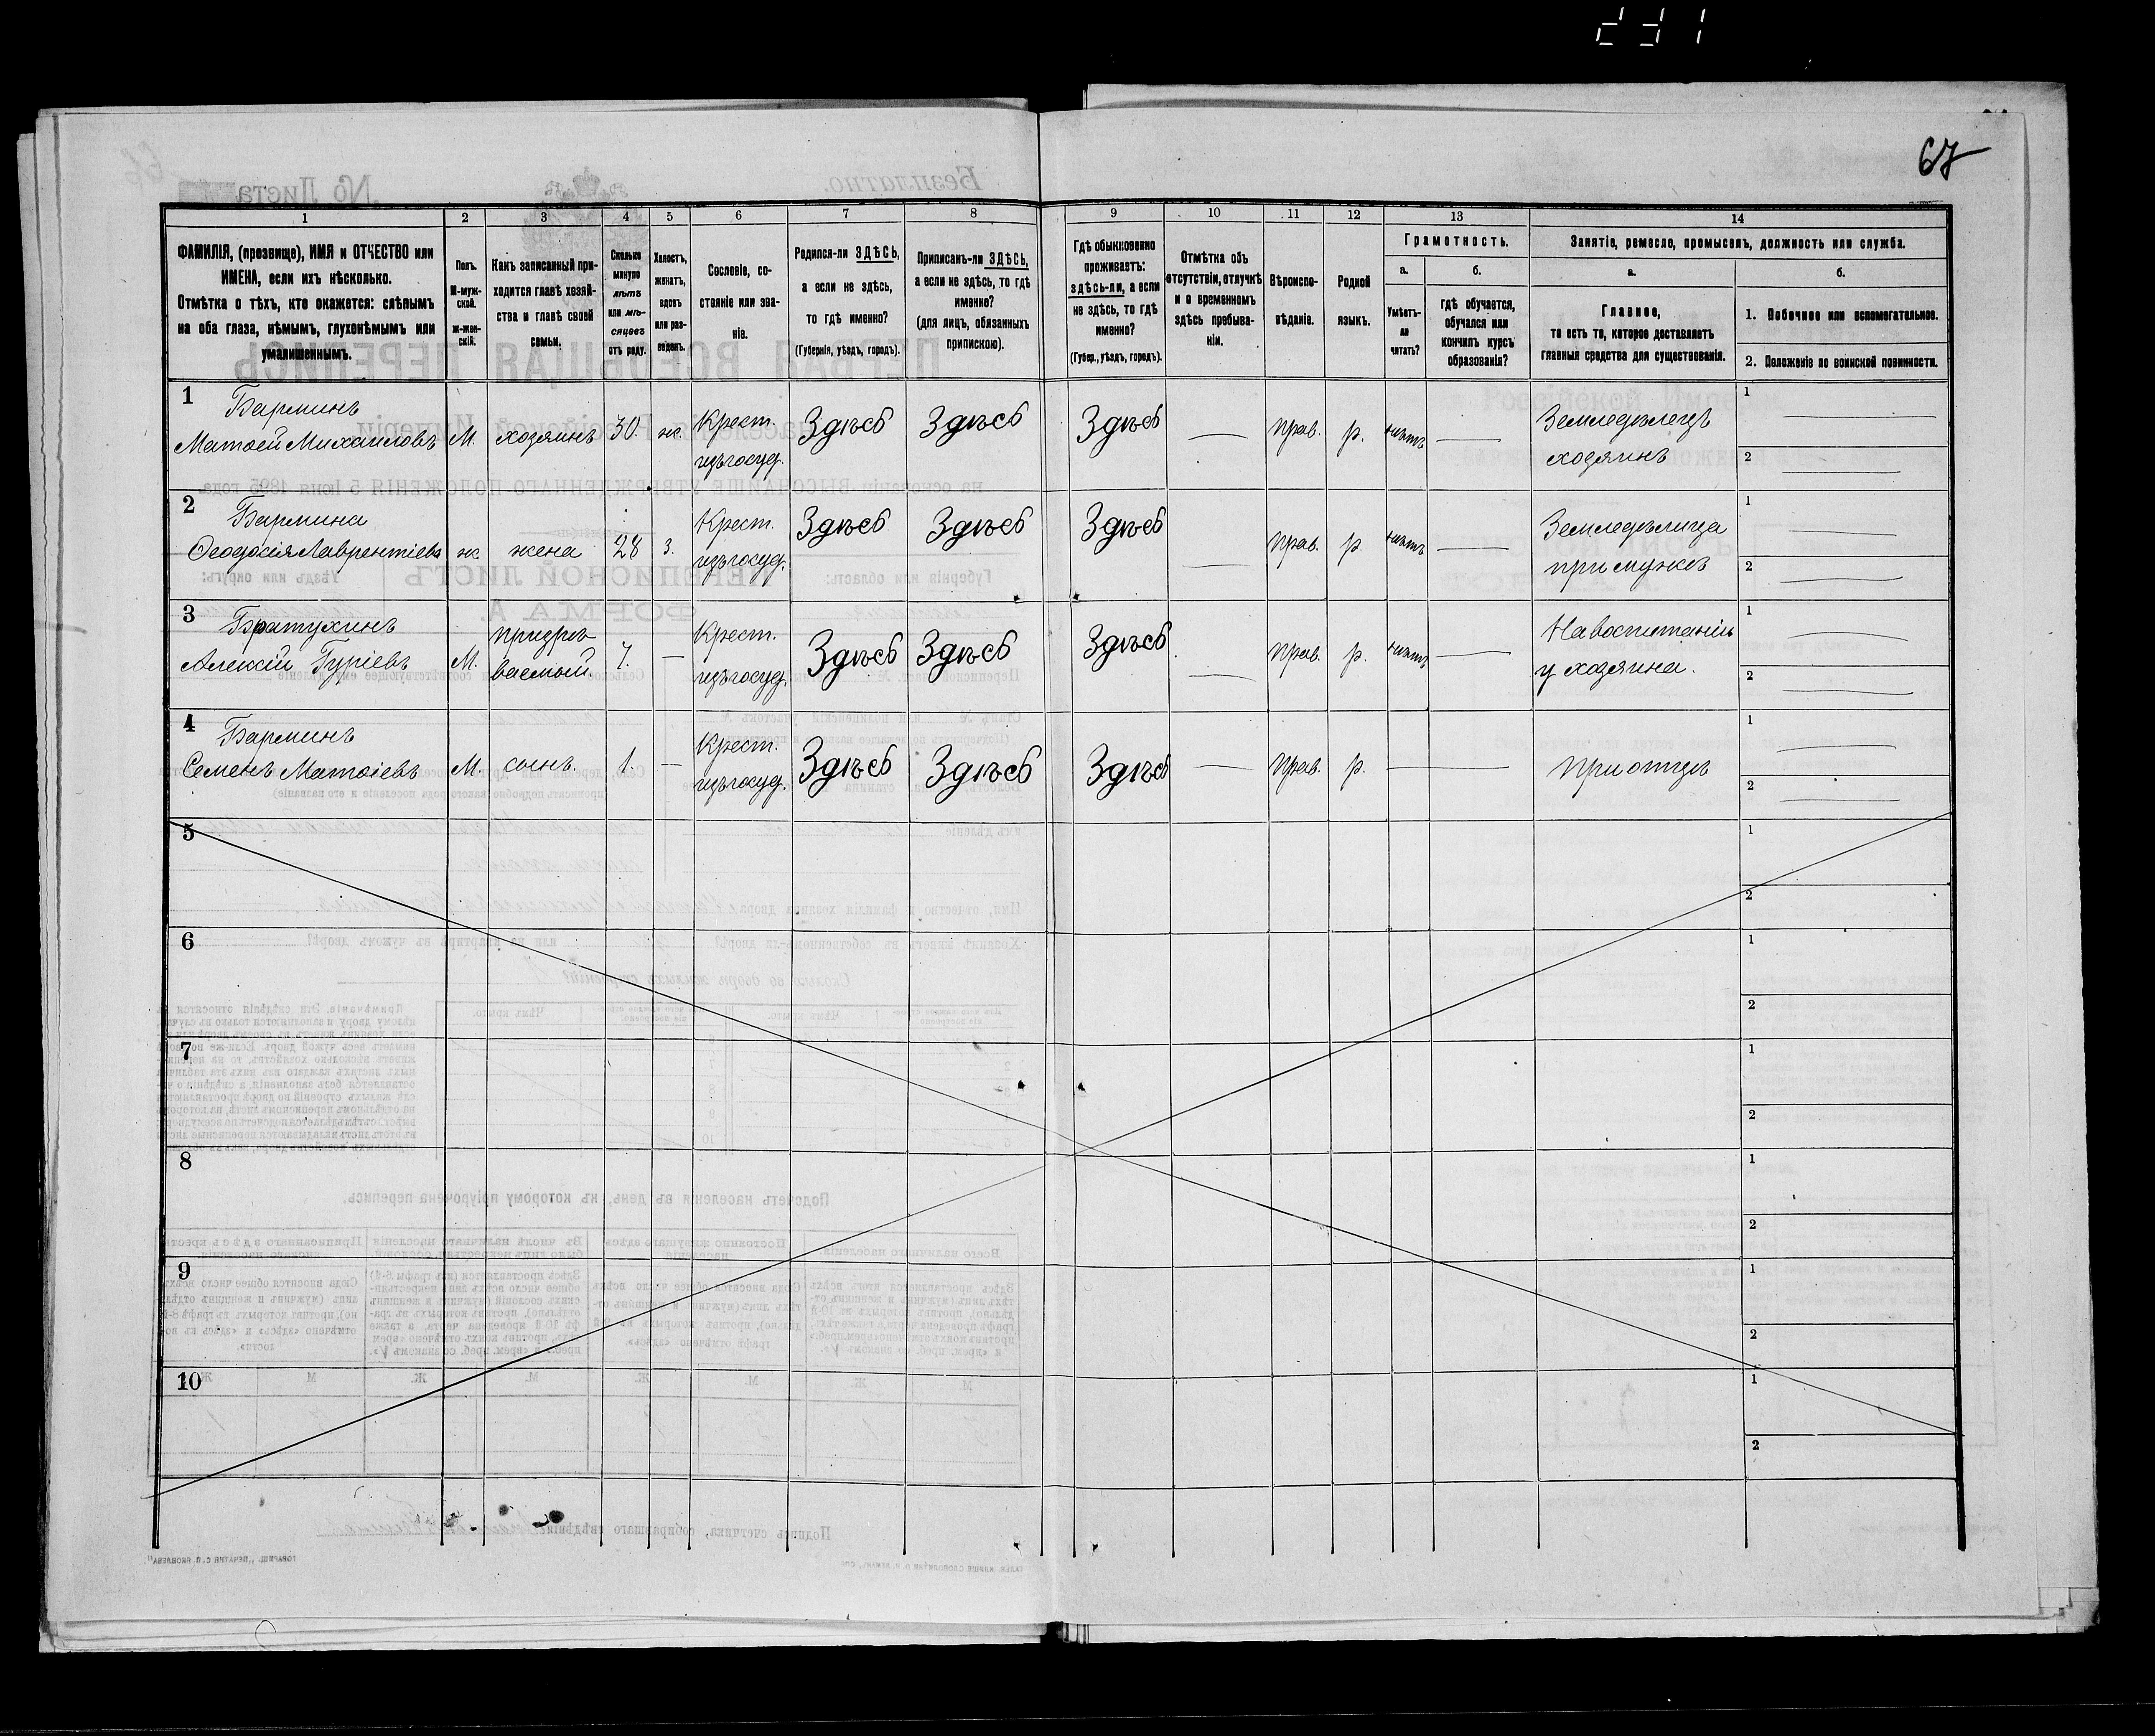 231
67
1 2 3 4 5 6 7 8 9 10 11 12 13 14
ФАМИЛІЯ, (прозвище), ИМЯ и ОТЧЕСТВО или
ИМЕНА, если ихъ нѣсколько.
Отмѣтка о тѣхъ, кто окажется: слѣпымъ
на оба глаза, нѣмымъ, глухонѣмымъ или
умалишеннымъ.
Полъ.
М-муж-
ской.
Ж-жен-
скій.
Какъ записанный при-
ходится главѣ хозяй-
ства и главѣ своей
семьи.
Сколько
минуло
лѣтъ
или мѣ-
сяцевъ
отъ роду.
Холостъ,
женатъ,
вдовъ
или раз-
веденъ.
Сословіе, со-
стояніе или зва-
ніе.
Родился-ли ЗДѢСЬ,
а если не здѣсь,
то гдѣ именно?
(Губернія, уѣздъ, городъ).
Приписанъ-ли ЗДѢСЬ,
а если не здѣсь, то гдѣ
именно?
(для лицъ, обязанныхъ
припискою).
Гдѣ обыкновенно
проживаетъ:
здѣсь-ли, а если
не здѣсь, то гдѣ
именно?
(Губер., уѣздъ, городъ).
Отмѣтка объ
отсутствіи, отлучкѣ
и о временномъ
здѣсь пребыва-
ніи.
Вѣроиспо-
вѣданіе.
Родной
языкъ.
Грамотность.
а.
Умѣетъ-
ли
читать?
б.
гдѣ обучается,
обучался или
кончилъ курсъ
образованія?
Занятіе, ремесло, промыселъ, должность или служба.
а.
Главное,
то есть то, которое доставляетъ
главныя средства для существованія.
б.
1. Побочное или вспомогательное.
2. Положеніе по воинской повинности.
1
Барминъ
Матѳей Михаиловъ М. хозяинъ 30. ж. Крест. Здѣсь Здѣсь Здѣсь — прав. р. нѣтъ — Земледѣлецъ 1 —
изъ госуд. хозяинъ 2 —
2
Бармина
Ѳеодосія Лаврентіева ж. жена 28 з. Крест. Здѣсь Здѣсь Здѣсь — прав. р. нѣтъ — Земледѣлица 1 —
изъ госуд. при мужѣ 2 —
3
Братухинъ
Алексій Гуріевъ М. придрѣ- 7. — Крест. Здѣсь Здѣсь Здѣсь — прав. р. нѣтъ — На воспитаніи 1 —
ваемый изъ госуд. у хозяина. 2 —
4
Барминъ
Семенъ Матѳіевъ М. сынъ. 1. — Крест. Здѣсь Здѣсь Здѣсь — прав. р. — При отцѣ 1 —
изъ госуд. 2 —
5 1
2
6 1
2
7 1
2
8 1
2
9 1
2
10 1
2